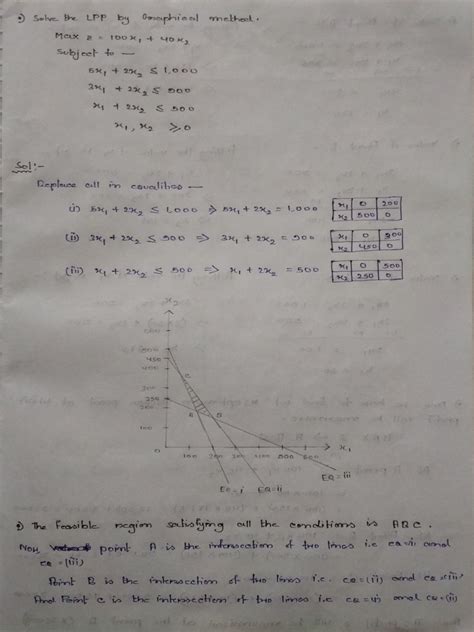 Solve the LPP by Graphical method.
Max Z = 100x₁ + 40x₂
Subject to —
5x₁ + 2x₂ ≤ 1,000
3x₁ + 2x₂ ≤ 900
x₁ + 2x₂ ≤ 500
x₁, x₂ ≥ 0
Sol:-
Replace all in equalities —
i) 5x₁ + 2x₂ ≤ 1,000 ⇒ 5x₁ + 2x₂ = 1,000 x₁ 0 200
x₂ 500 0
(ii) 3x₁ + 2x₂ ≤ 900 ⇒ 3x₁ + 2x₂ = 900 x₁ 0 300
x₂ 450 0
(iii) x₁ + 2x₂ ≤ 500 ⇒ x₁ + 2x₂ = 500 x₁ 0 500
x₂ 250 0
x₂
500
450
400
300
250
200
100
0 100 200 300 400 500 600 x₁
C
A B
EQ=i EQ=ii EQ=iii
The Feasible region satisfying all the conditions is ABC.
Now point A is the intersection of two lines i.e eq=i) and
eq=(iii)
Point B is the intersection of two lines i.e. eq=(ii) and eq=(iii)
And Point C is the intersection of two lines i.e eq=i) and eq=(ii)